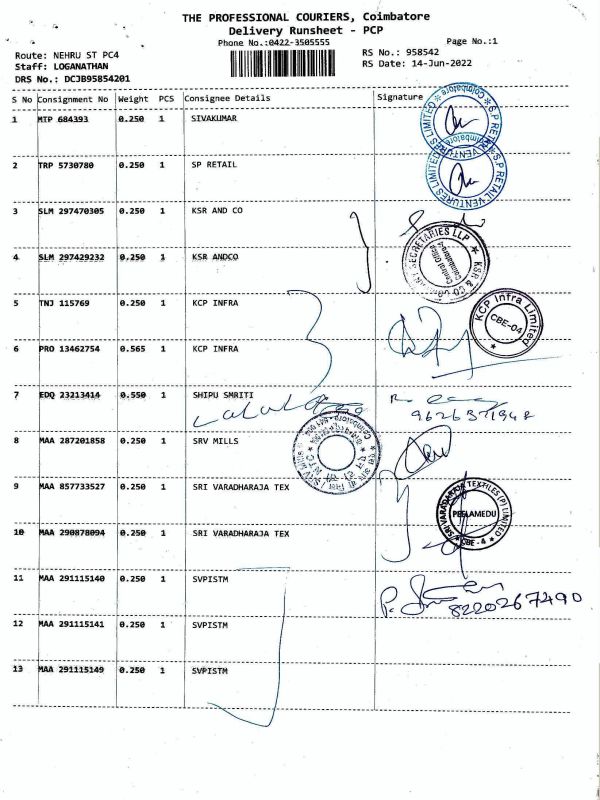 THE PROFESSIONAL COURIERS, Coimbatore
Delivery Runsheet - PCP
Phone No.:0422-3505555
Page No.:1
Route: NEHRU ST PC4
RS No.: 958542
Staff: LOGANATHAN
RS Date: 14-Jun-2022
DRS No.: DCJB95854201
S No Consignment No Weight PCS Consignee Details Signature
1 MTP 684393 0.250 1 SIVAKUMAR
S.P RETAIL VENTURES LIMITED Coimbatore
2 TRP 5730780 0.250 1 SP RETAIL
S.P RETAIL VENTURES LIMITED
3 SLM 297470305 0.250 1 KSR AND CO
4 SLM 297429232 0.250 1 KSR ANDCO
KSR & CO SECRETARIES LLP
Central Office
Coimbatore-4
5 TNJ 115769 0.250 1 KCP INFRA
KCP Infra Limited
CBE-04
6 PRO 13462754 0.565 1 KCP INFRA
7 EDQ 23213414 0.550 1 SHIPU SMRITI
8 MAA 287201858 0.250 1 SRV MILLS
9 MAA 857733527 0.250 1 SRI VARADHARAJA TEX
SRI VARADARAJA TEXTILES (P) LIMITED
PEELAMEDU
CBE - 4
10 MAA 290878094 0.250 1 SRI VARADHARAJA TEX
11 MAA 291115140 0.250 1 SVPISTM
8220267490
12 MAA 291115141 0.250 1 SVPISTM
13 MAA 291115149 0.250 1 SVPISTM